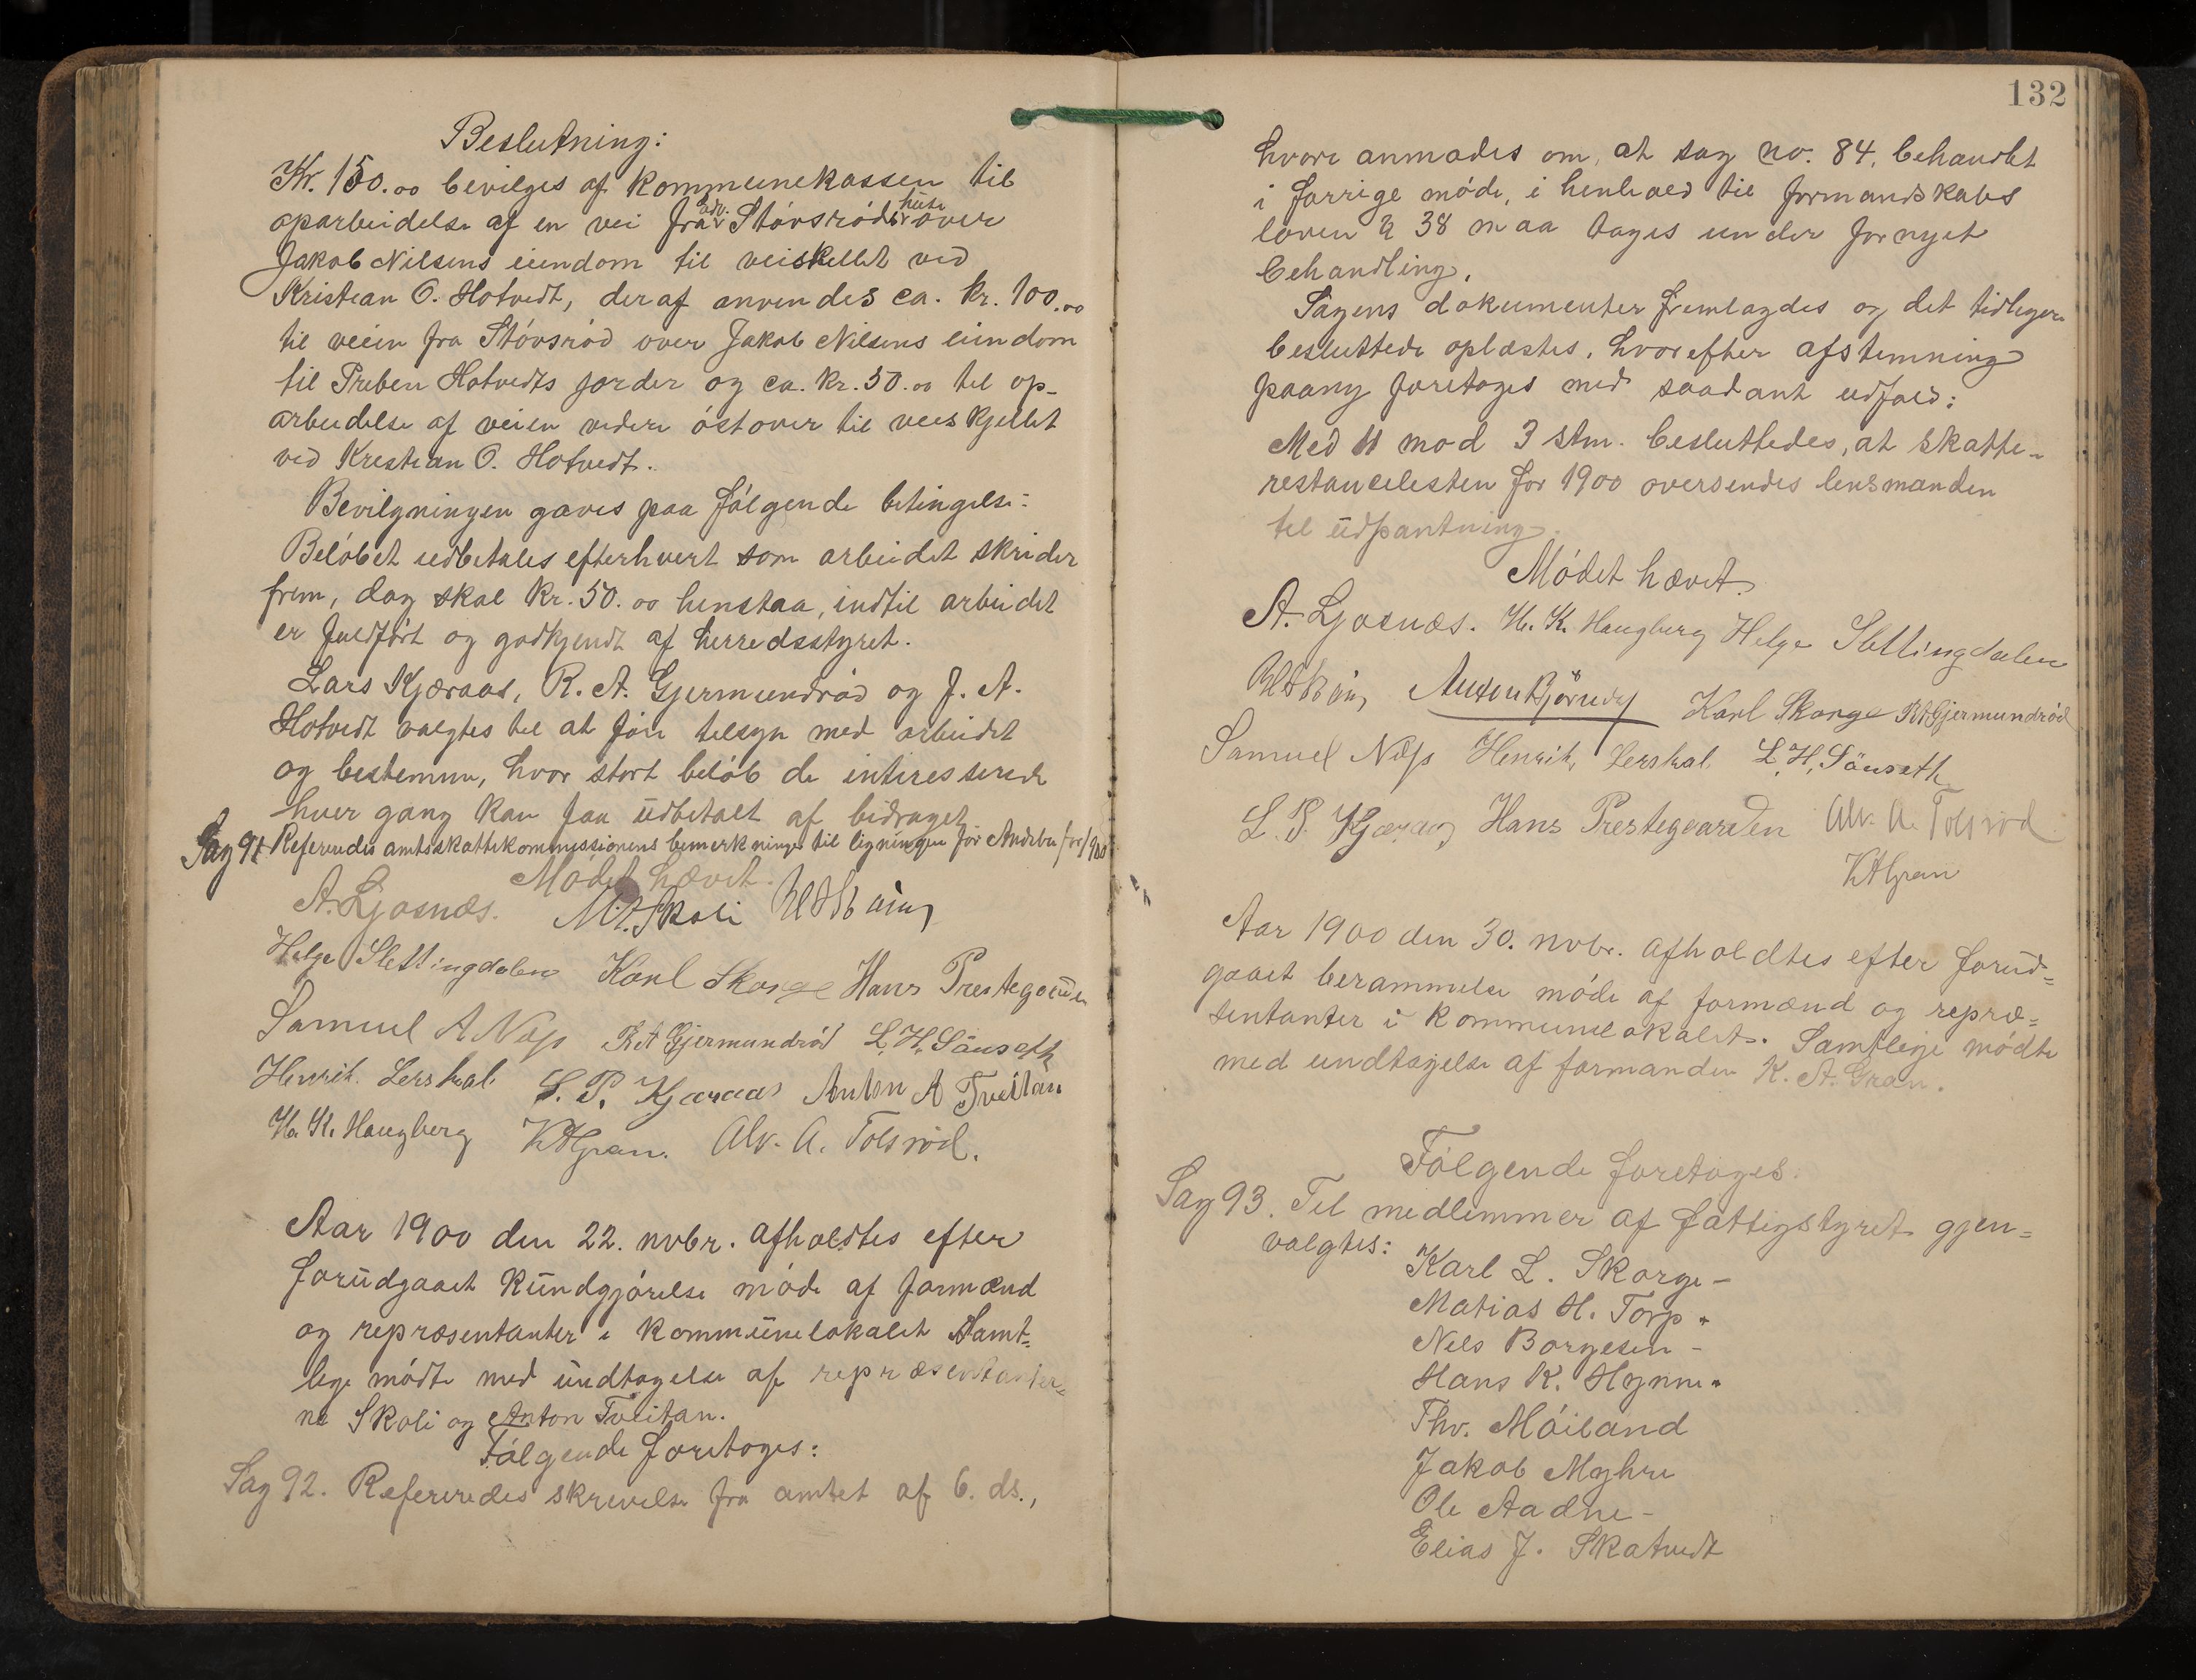 Beslutning:
Kr. 150.00 bevilges af kommunekassen til
oparbeidelse af en vei fra Stövsröd over
Jakob Nilsens eiendom til veiskellet ved
Kristian O. Hotvedt, deraf anvendes ca. kr. 100.00
til veien fra Stövsröd over Jakob Nilsens eiendom
til Preben Hotvedts jorder og ca. kr. 50.00 til op-
arbeidelse af veien videre östover til veiskjellet
ved Kristian O. Hotvedt.
Bevilgningen gaves paa fölgende betingelse:
Belöbet udbetales efterhvert som arbeidet skrider
frem, dog skal kr. 50.00 henstaa, indtil arbeidet
er fuldfört og godkjendt af herredsstyret.
Lars Kjæraas, R. A. Gjermundröd og J. A.
Hotvedt valgtes til at före tilsyn med arbeidet
og bestemme, hvor stort belöb de interesserede
hver gang kan faa udbetalt af bidraget.
Sag 91 Refereredes amtsskattekommissionens bemerkninger til ligningen for Andebu for 1900
Mödet hævet.
A. Ljosnæs. M. A. Skoli
Helge Slettingdalen Karl Skorge Hans Prestegården
Samuel A Næss R A Gjermundröd L. H. Sönseth
Henrik Lerskal L. P. Kjæraas Anton A Tveitan
H. K. Haugberg K A Gran. Alv. A. Tolsröd.
Aar 1900 den 22. novbr. afholdtes efter
forudgaaet kundgjörelse möde af formænd
og repræsentanter i kommunelokalet Samt=
lige mödte med undtagelse af repræsentanter=
ne Skoli og Anton Tveitan.
Fölgende foretoges:
Sag 92. Refereredes skrivelse fra amtet af 6. ds.,
132
hvori anmodes om, at sag no. 84, behandlet
i forrige möde, i henhold til formandskabs
loven § 38 maa tages under fornyet
behandling.
Sagens dokumenter fremlagdes og det tidligere
besluttede oplæstes, hvorefter afstemning
paany foretoges med saadant udfald:
Med 11 mod 3 stm. besluttedes, at skatte-
restancelisten for 1900 oversendes lensmanden
til udpantning.
Mödet hævet.
A. Ljosnæs. H. K. Haugberg Helge Slettingdalen
Karl Skorge R A Gjermundröd
Samuel Næss Henrik Lerskal L. H. Sönseth
L. P. Kjæraas Hans Prestegaarden Alv. A. Tolsröd
K A Gran
Aar 1900 den 30. novbr. afholdtes efter forud=
gaaet berammelse möde af formænd og repræ=
sentanter i kommunelokalet. Samtlige mödte
med undtagelse af formanden K. A. Gran.
Fölgende foretoges:
Sag 93. Til medlemmer af fattigstyret gjen=
valgtes:
Karl L. Skorge -
Matias H. Torp -
Nils Borgesen -
Hans K. Hynne -
Thv. Möiland
Jakob Myhre
Ole Aadne -
Elias J. Skatvedt